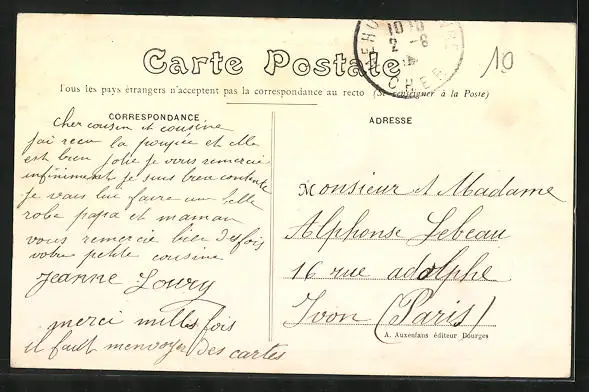 10
10 10
2 - 8
CHER
Carte Postale
Tous les pays étrangers n'acceptent pas la correspondance au recto (Se renseigner à la Poste)
CORRESPONDANCE
ADRESSE
Cher cousin et cousine
j'ai recu la poupée et elle
est bien jolie je vous remercie
infiniment je suis bien contente
je vais lui faire une belle
robe papa et maman
vous remercie bien des fois
votre petite cousine
Jeanne Loury
merci milles fois
il fault menvoyer des cartes
Monsieur et Madame
Alphonse Lebeau
16 rue adolphe
Ivon (Paris)
A. Auxenfans éditeur Bourges